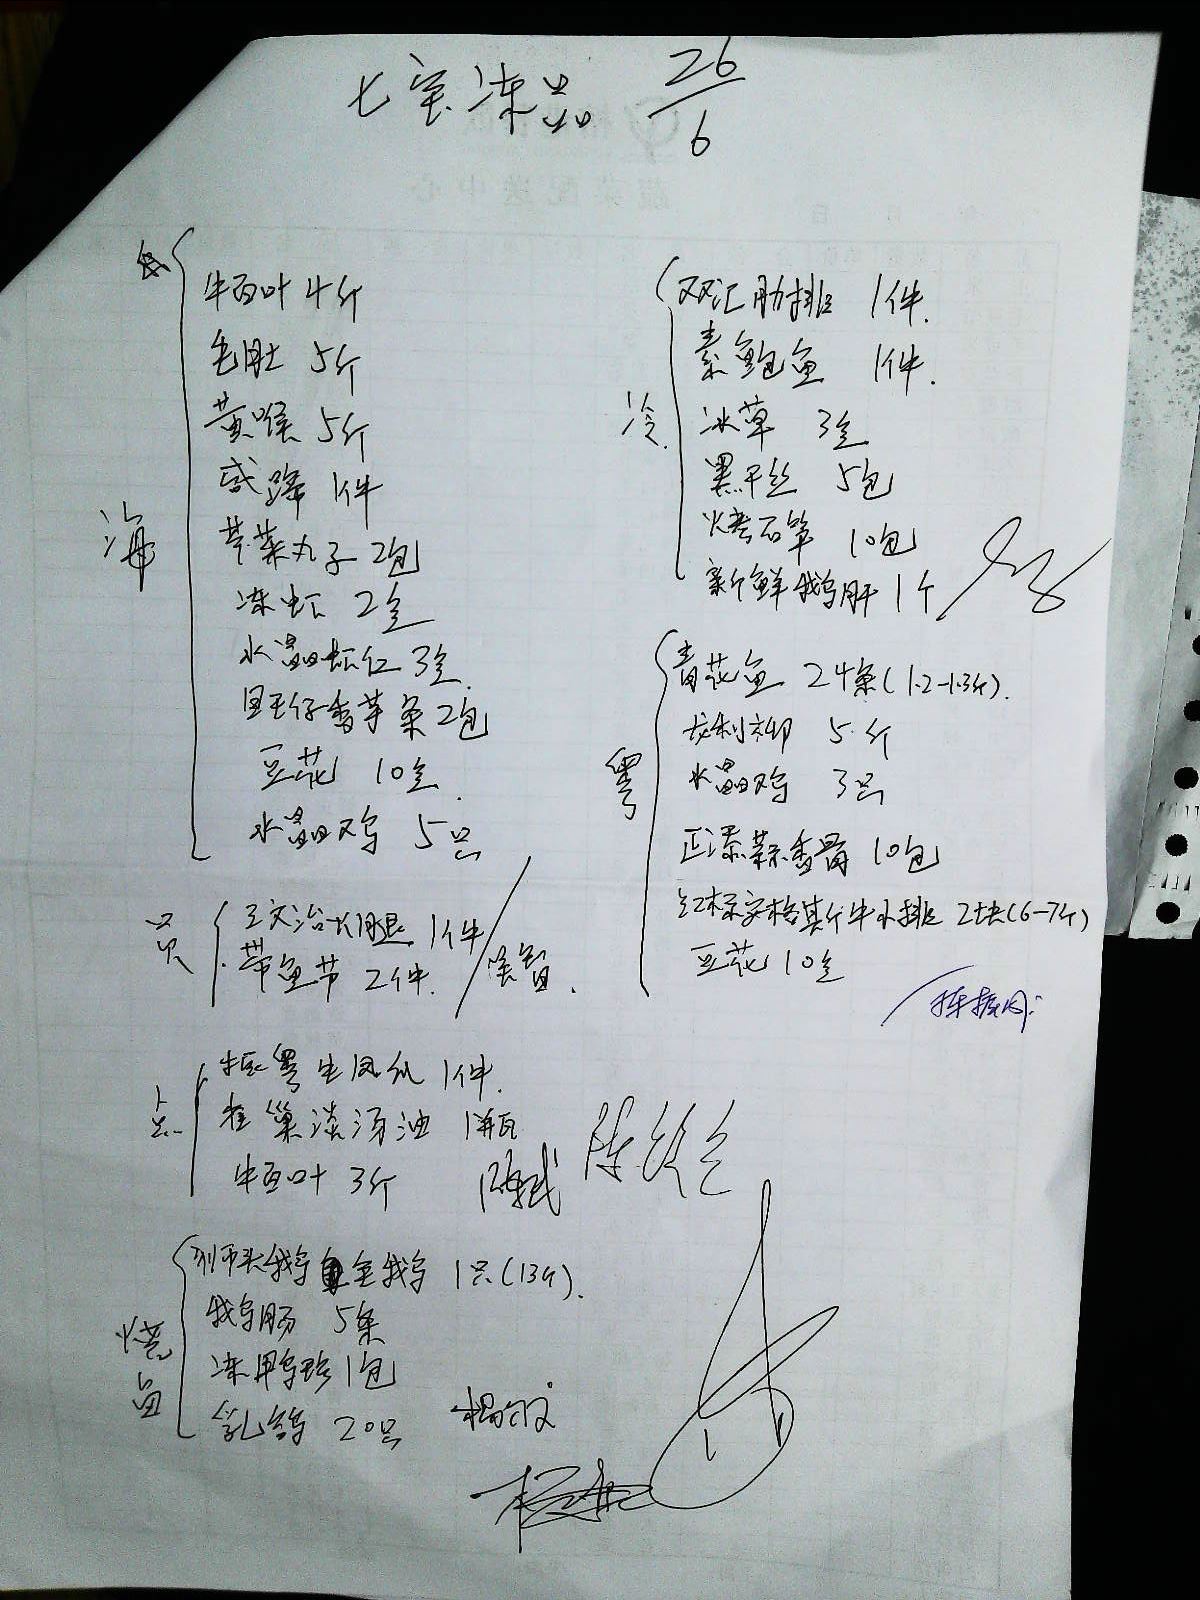 七宝冻品 26/6
海
牛百叶 4斤
毛肚 5斤
黄喉 5斤
1件
芹菜丸子 2包
冻虾 2盒
水晶虾仁 3盒
香芋条 2包
豆花 10盒
水晶鸡 5只
员
三文治火腿 1件
带鱼节 2件
点
生凤爪 1件
1瓶
牛百叶 3斤
烧卤
狮头鹅 1只(13斤)
鹅肠 5条
冻鸭珍 1包
乳鸽 20只
冷
双汇肋排 1件
素鲍鱼 1件
冰草 3盒
黑干丝 5包
烤石笋 10包
新鲜鹅肝 1个
粤
青花鱼 24条(1.2-1.3斤)
龙利柳 5斤
水晶鸡 3只
正添蒜香骨 10包
红标安格斯牛小排 2块(6-7斤)
豆花 10盒